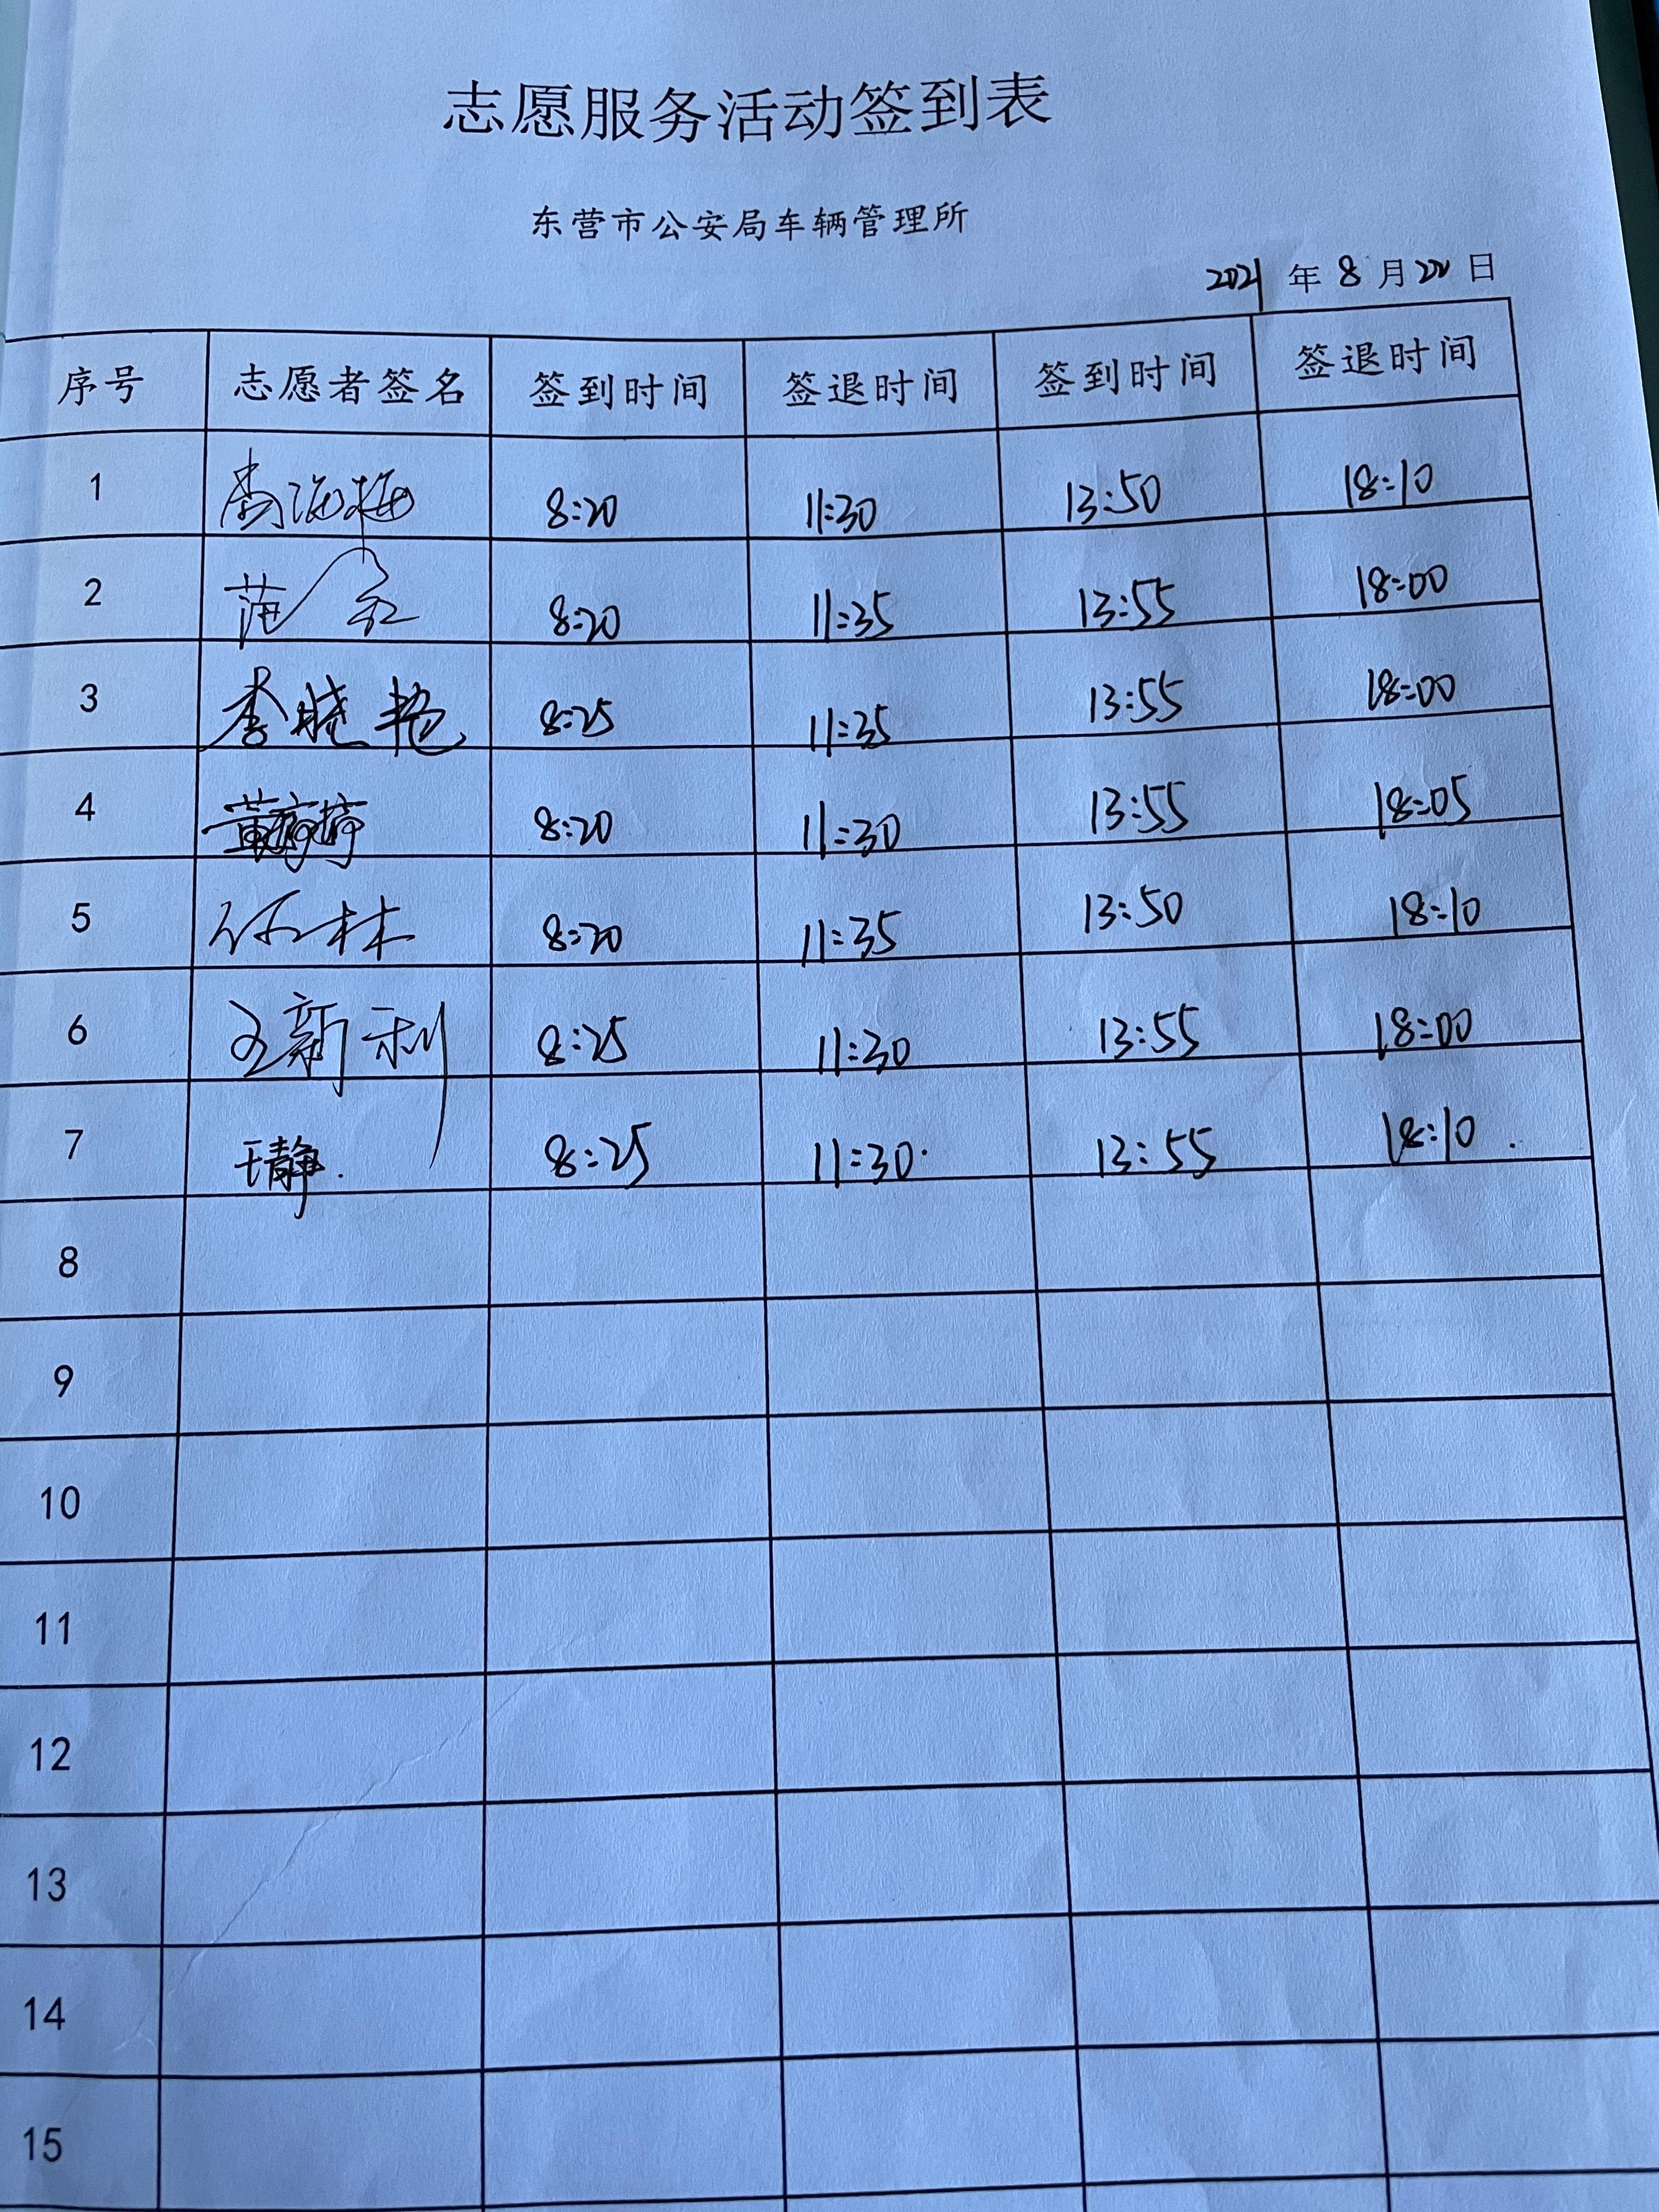 志愿服务活动签到表
东营市公安局车辆管理所
2021 年 8 月 20 日
序号 志愿者签名 签到时间 签退时间 签到时间 签退时间
1 8:20 11:30 13:50 18:10
2 8:20 11:35 13:55 18:00
3 李晓艳 8:25 11:35 13:55 18:00
4 8:20 11:30 13:55 18:05
5 任林 8:20 11:35 13:50 18:10
6 王新利 8:25 11:30 13:55 18:00
7 王静. 8:25 11:30. 13:55 18:10.
8
9
10
11
12
13
14
15